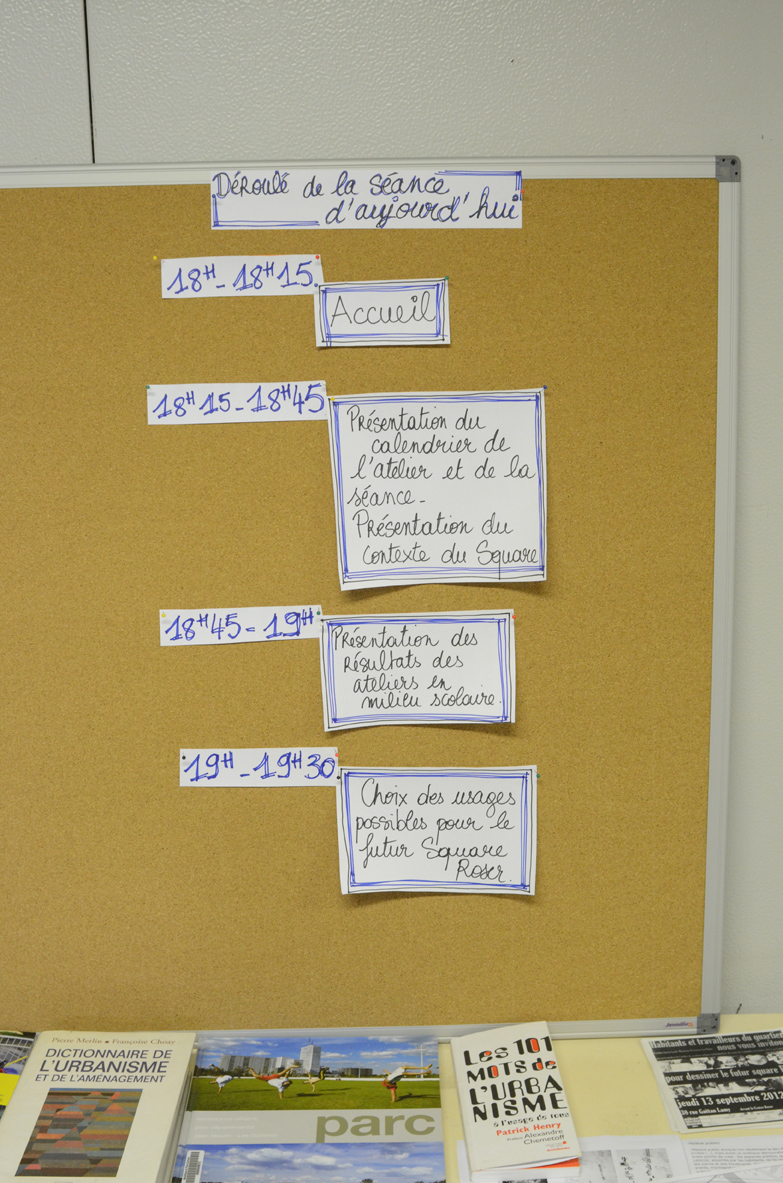 Déroulé de la séance
d'aujourd'hui
18H - 18H15
Accueil
18H15 - 18H45
Présentation du
calendrier de
l'atelier et de la
séance -
Présentation du
contexte du Square
18H45 - 19H
Présentation des
résultats des
ateliers en
milieu scolaire.
19H - 19H30
Choix des usages
possibles pour le
futur Square
Roser.
Pierre Merlin • Françoise Choay
DICTIONNAIRE DE
L'URBANISME
ET DE L'AMENAGEMENT
parc
LES 101
MOTS DE
L'URBA
NISME
à l'usage de tous
Patrick Henry
Alexandre
Chemetoff
Habitants et travailleurs du quartier
nous vous invitons
pour dessiner le futur square
jeudi 13 septembre 2012